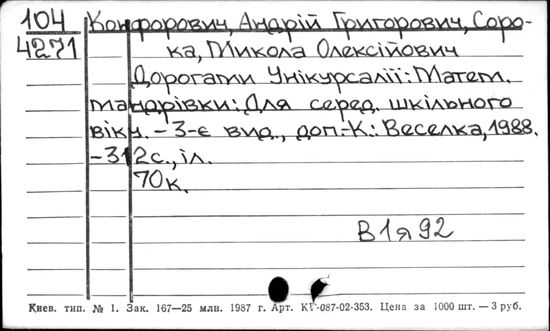 104
4271
Конфорович, Андрій Григорович, Соро-
ка, Микола Олексійович
Дорогами Унікурсалії: Матем.
мандрівки: Для серед. шкільного
віку. – 3-є вид., доп.-К.: Веселка, 1988.
– 312 с., іл.
70к.
В1я92
Киев. тип. № 1. Зак. 167—25 млн. 1987 г. Арт. КГ-087-02-353. Цена за 1000 шт. — 3 руб.